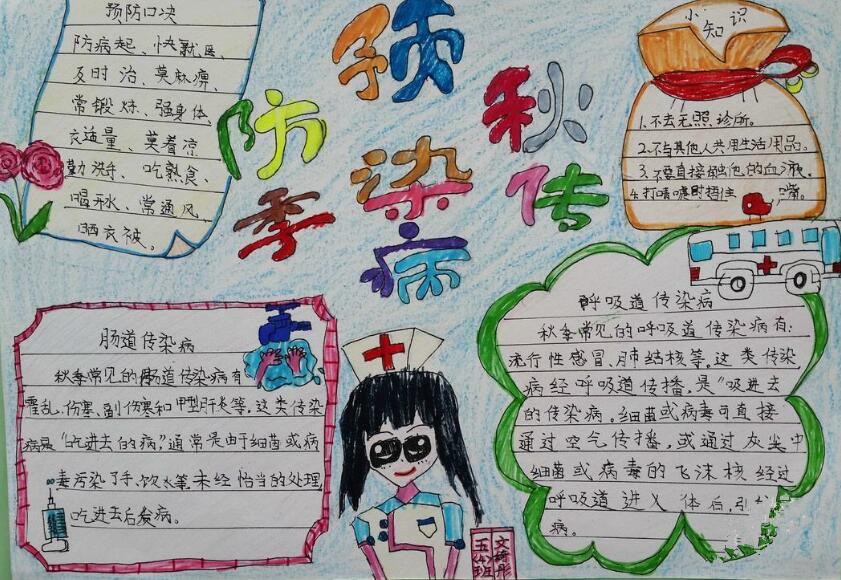 预防口决
防病起、快就医、
及时治、莫麻痹、
常锻炼、强身体、
衣适量、莫着凉
勤洗手、吃熟食、
喝开水、常通风、
晒衣被。
预防秋季传染病
小知识
1.不去无照诊所。
2.不与其他人共用生活用品。
3.不要直接触他的血液。
4.打喷嚏时捂住 嘴。
肠道传染病
秋季常见的肠道传染病有
霍乱、伤寒、副伤寒和甲型肝炎等。这类传染
病是“吃进去的病”，通常是由于细菌或病
毒污染了手、饮水等未经恰当的处理
吃进去后发病。
呼吸道传染病
秋季常见的呼吸道传染病有：
流行性感冒、肺结核等。这类传染
病经呼吸道传播，是“吸进去
的传染病。细菌或病毒可直接
通过空气传播，或通过灰尘中
细菌或病毒的飞沫核经过
呼吸道进入体后，引
病。
五(4)班
文绮彤